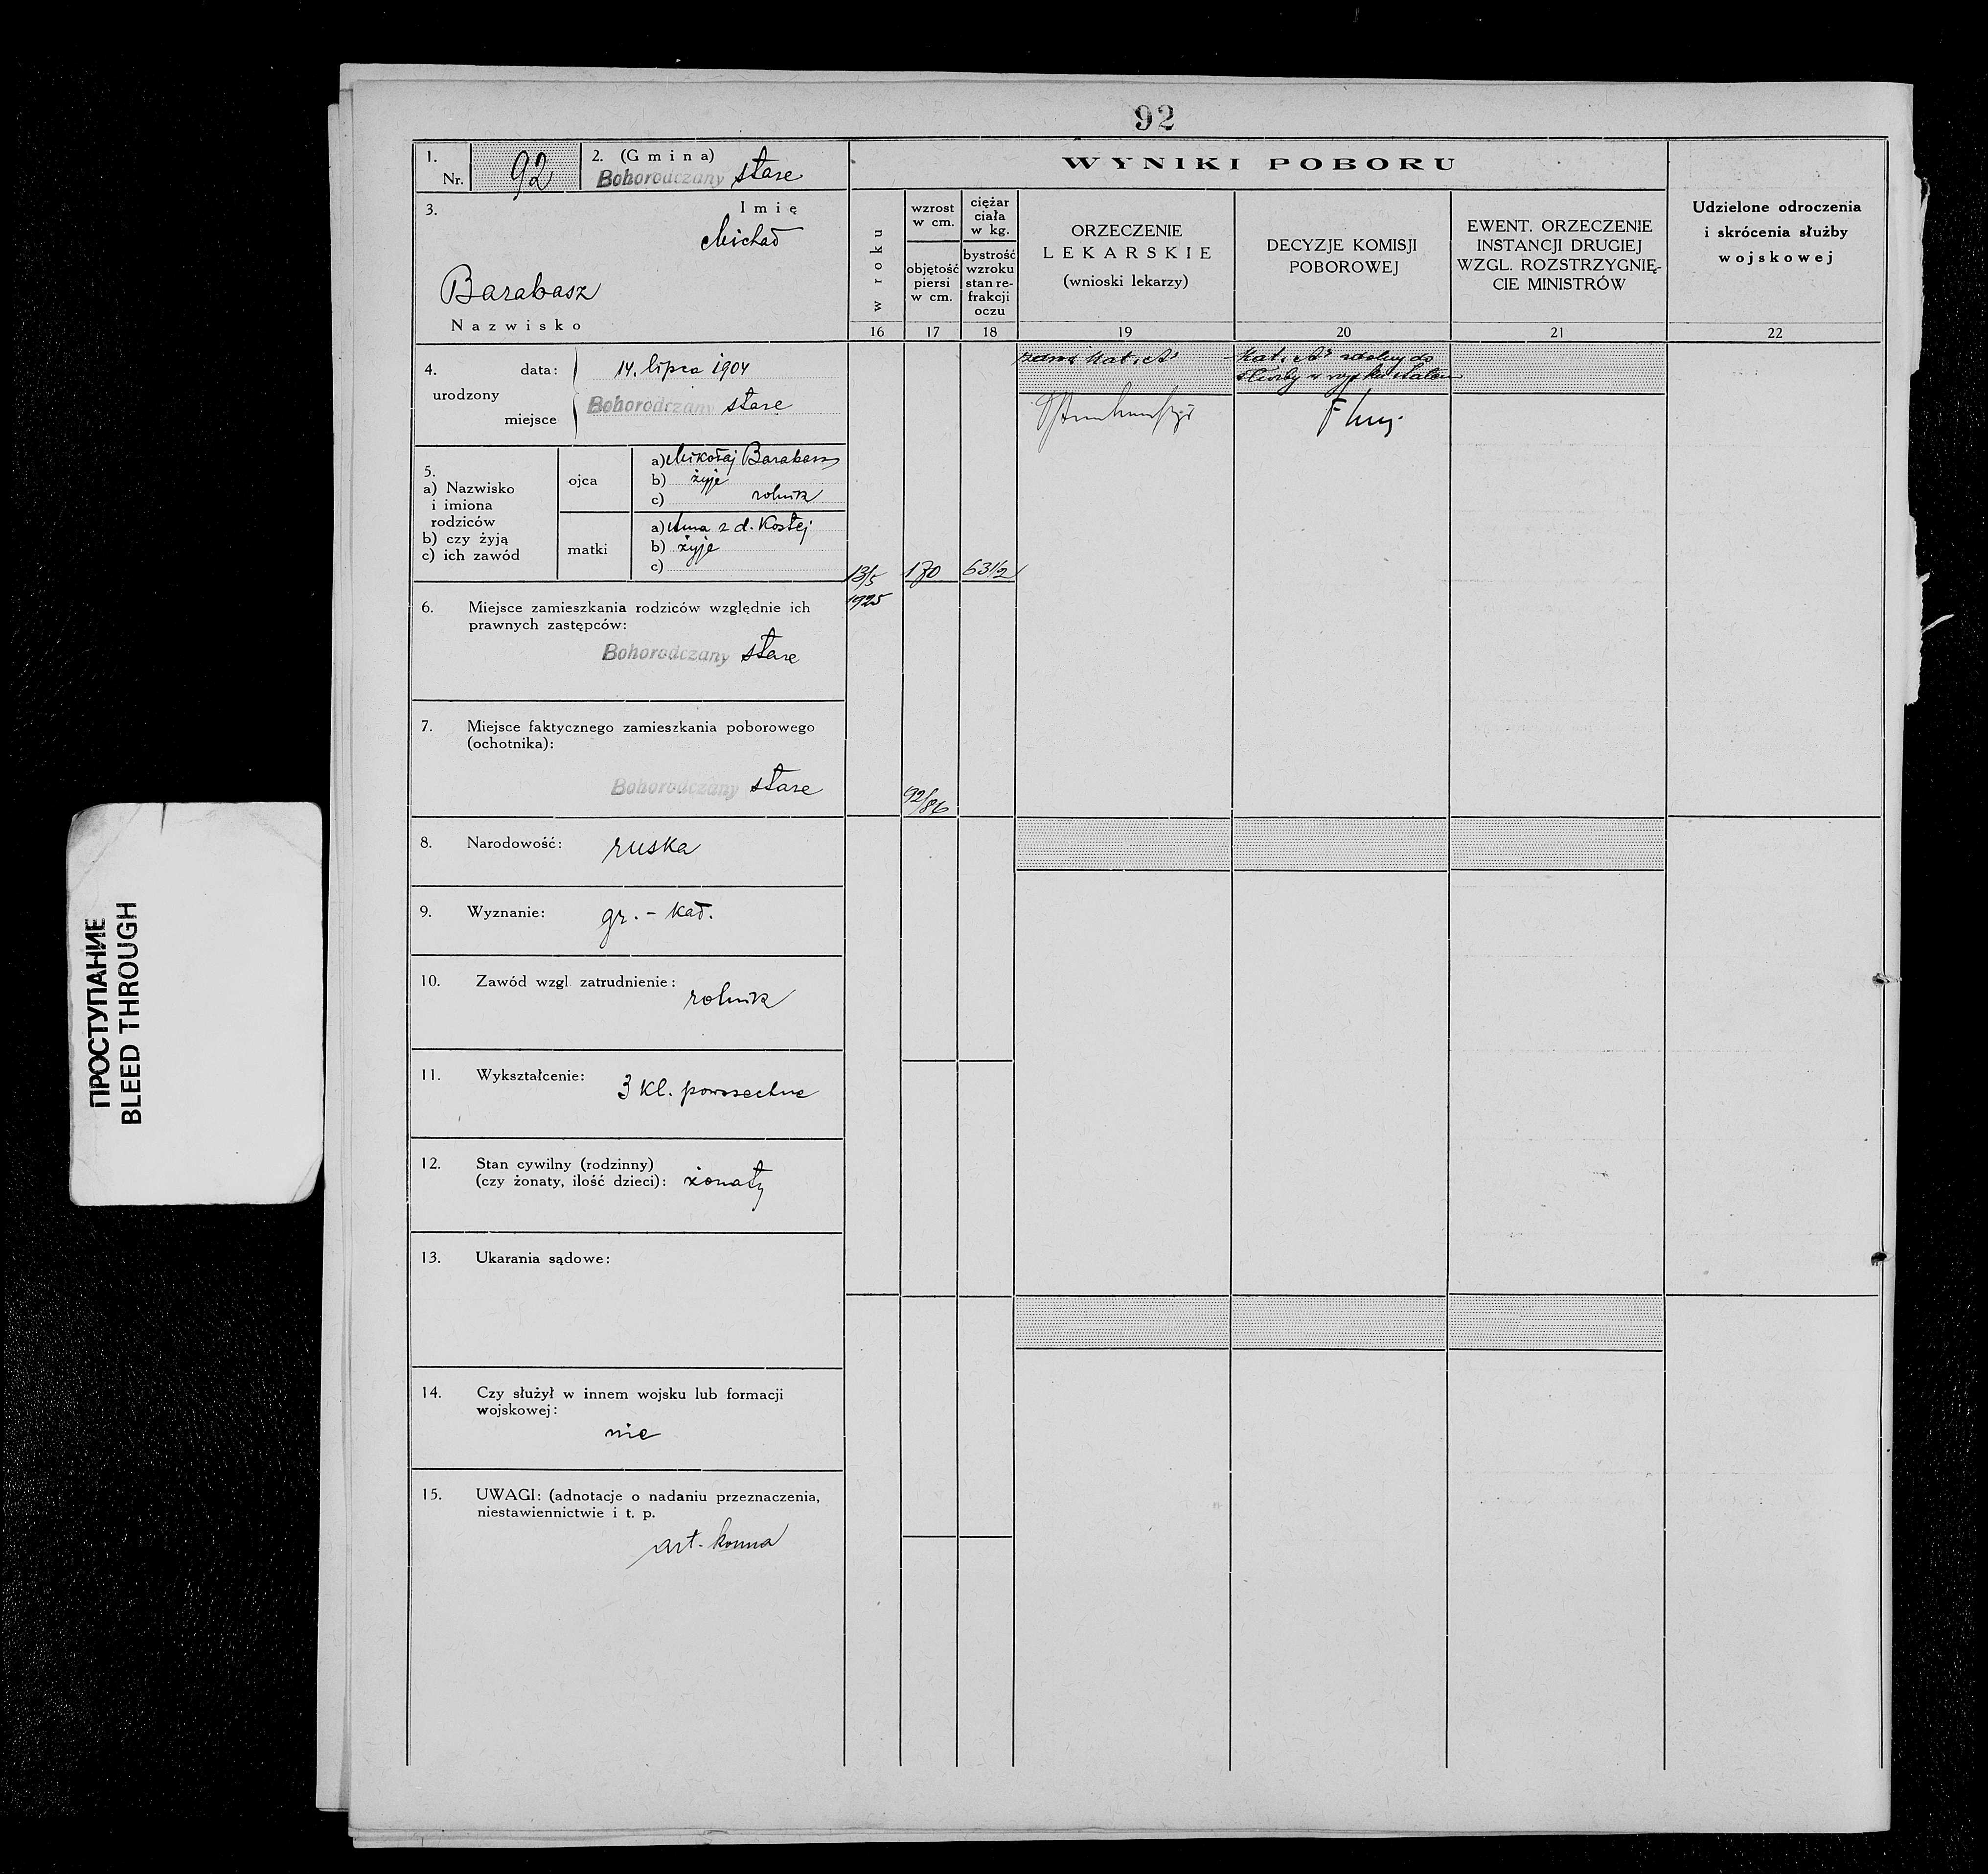 92
1. Nr. 92
2. (Gmina) Bohorodczany stare
3. Imię
Michał
Barabasz
Nazwisko
4. urodzony
data: 14. lipca 1904
miejsce Bohorodczany stare
5.
a) Nazwisko
i imiona
rodziców
b) czy żyją
c) ich zawód
ojca
a) Mikołaj Barabasz
b) żyje
c) rolnik
matki
a) Anna z d. Kostej
b) żyje
c)
6. Miejsce zamieszkania rodziców względnie ich
prawnych zastępców:
Bohorodczany stare
7. Miejsce faktycznego zamieszkania poborowego
(ochotnika):
Bohorodczany stare
8. Narodowość: ruska
9. Wyznanie: gr. - kat.
10. Zawód wzgl. zatrudnienie: rolnik
11. Wykształcenie: 3 kl. powszechne
12. Stan cywilny (rodzinny)
(czy żonaty, ilość dzieci): żonaty
13. Ukarania sądowe:
14. Czy służył w innem wojsku lub formacji
wojskowej:
nie
15. UWAGI: (adnotacje o nadaniu przeznaczenia,
niestawiennictwie i t. p.
art. konna
WYNIKI POBORU
w roku
16
wzrost
w cm.
objętość
piersi
w cm.
17
ciężar
ciała
w kg.
bystrość
wzroku
stan re-
frakcji
oczu
18
ORZECZENIE
LEKARSKIE
(wnioski lekarzy)
19
DECYZJE KOMISJI
POBOROWEJ
20
EWENT. ORZECZENIE
INSTANCJI DRUGIEJ
WZGL. ROZSTRZYGNIĘ-
CIE MINISTRÓW
21
Udzielone odroczenia
i skrócenia służby
wojskowej
22
13/5
1925
170
63 1/2
92/86
kat. A
Kat. „A" zdolny do
służby w
ПРОСТУПАНИЕ
BLEED THROUGH